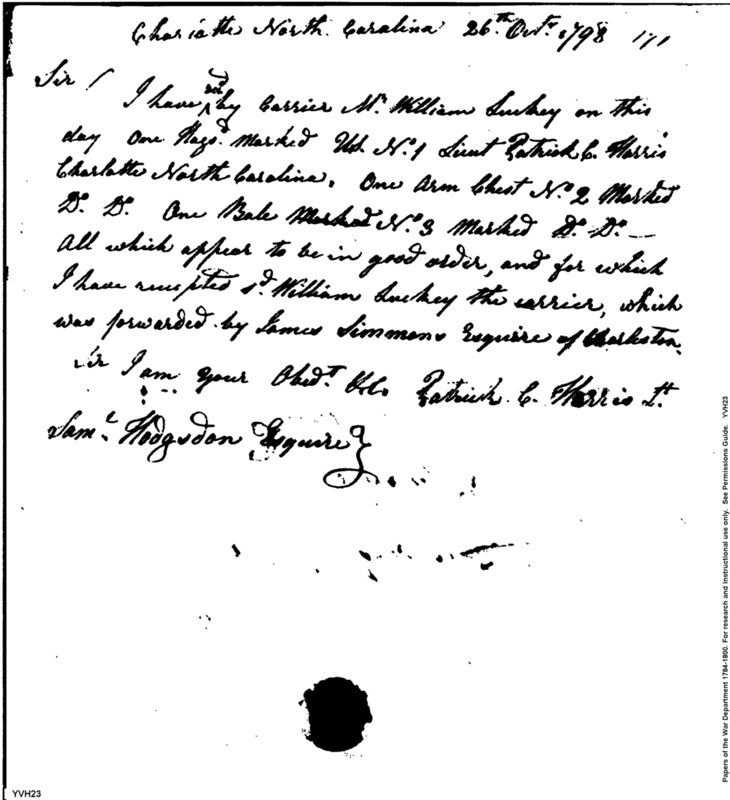 Charlotte North Carolina 26.th Octr. 1798
Sir /
I have recd by Carrier Mr. William Luckey on this
day One Hagsd. Marked Ud. No. 1 Lieut Patrick C. Harris
Charlotte North Carolina. One Arm Chest No. 2 Marked
Do. Do. One Bale Marked No. 3 Marked Do. Do. —
All which appear to be in good order, and for which
I have receipted sd. William Luckey the carrier, which
was forwarded by James Simmons Esquire of Charleston.
Sir I am your Obedt. &c. Patrick C. Harris Lt.
Saml. Hodgsdon Esquire
Papers of the War Department 1784-1800. For research and Instructional use only. See Permissions Guide. YVH23
YVH23